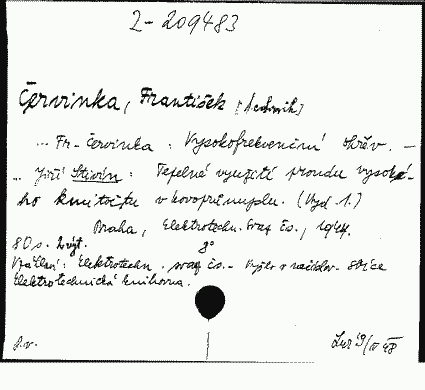 2-209483
Červinka, František [technik]
... Fr. Červinka: Vysokofrekvenční ohřev. —
... Jiří Stivín: Tepelné využití proudu vysoké-
ho kmitočtu v kovoprůmyslu. (Vyd. 1.)
Praha, Elektrotechn. svaz čs., 1944.
80 s. 2 vyt. 8°
Vydatel: Elektrotechn. svaz čs. - Vyšlo v
Elektrotechnická knihovna.